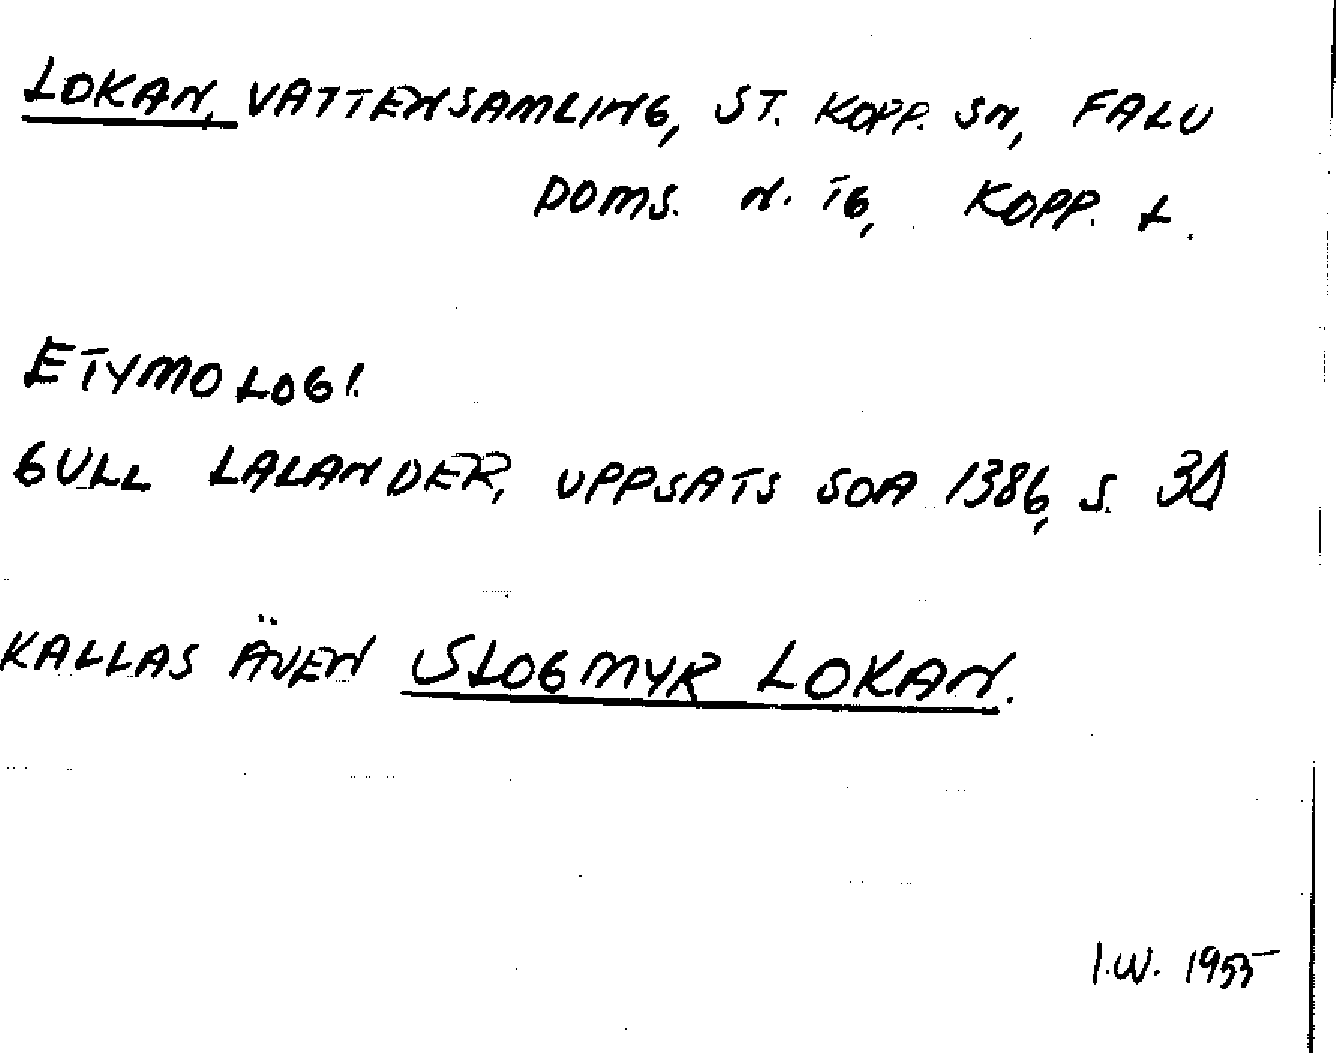 LOKAN, VATTENSAMLING, ST. KOPP. SN, FALU
DOMS. N. TG, KOPP. L.
ETYMOLOGI.
GULL LALANDER, UPPSATS SOA 1386, S.
KALLAS ÄVEN SLOGMYR LOKAN.
I.W. 1955